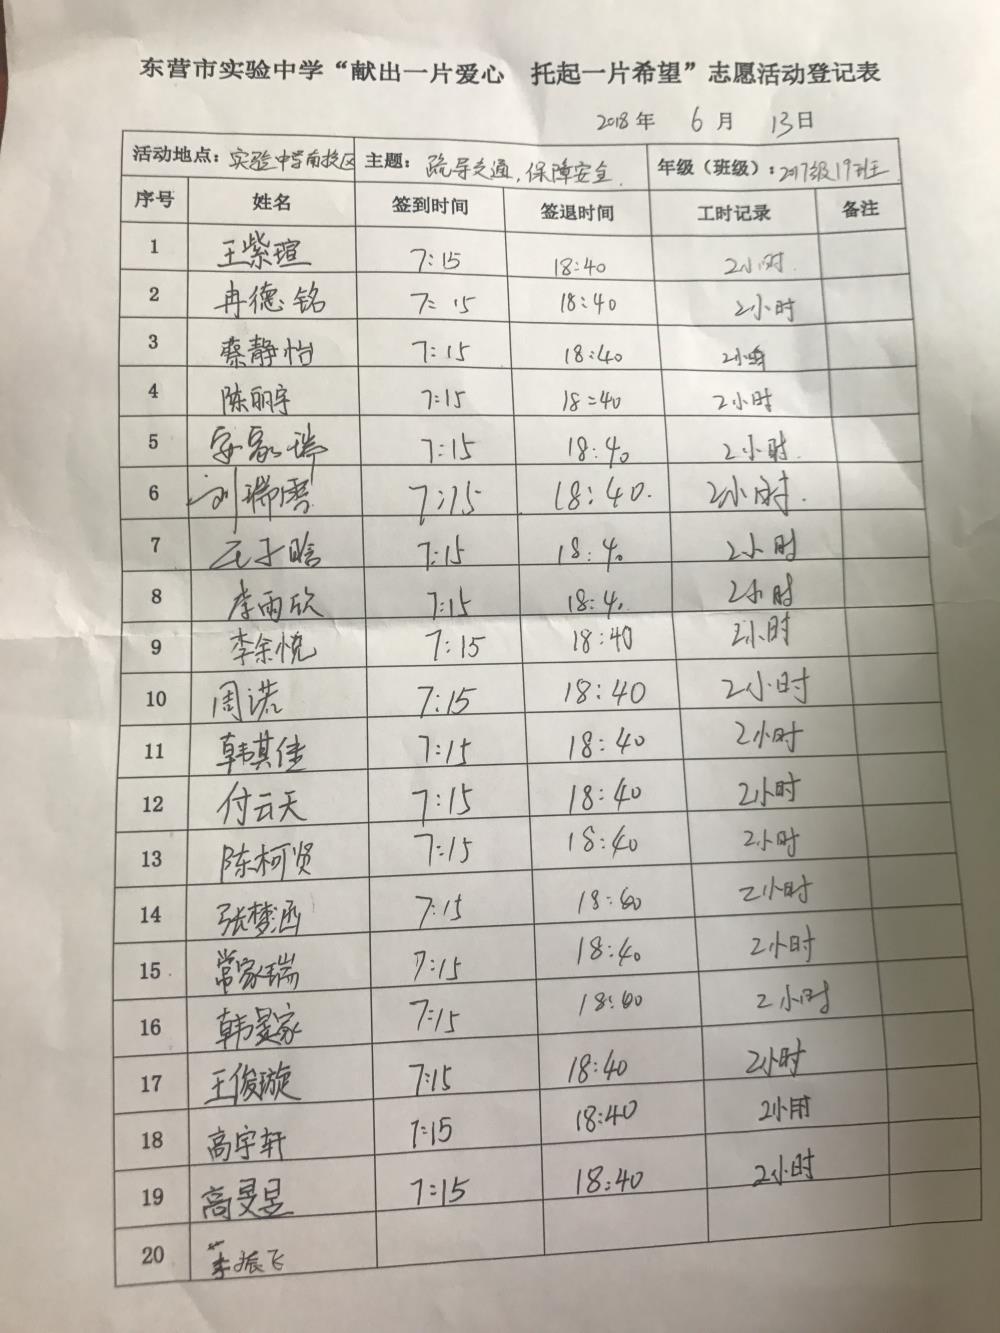 东营市实验中学“献出一片爱心 托起一片希望”志愿活动登记表
2018年 6月 13日
活动地点：实验中学南校区 主题：疏导交通，保障安全 年级（班级）：2017级19班
序号 姓名 签到时间 签退时间 工时记录 备注
1 王紫瑄 7:15 18:40 2小时
2 冉德铭 7:15 18:40 2小时
3 蔡静怡 7:15 18:40 2小时
4 陈丽宇 7:15 18:40 2小时
5 7:15 18:40 2小时
6 刘瑞雪 7:15 18:40 2小时
7 7:15 18:40 2小时
8 李雨欣 7:15 18:40 2小时
9 李余悦 7:15 18:40 2小时
10 周诺 7:15 18:40 2小时
11 韩其佳 7:15 18:40 2小时
12 付云天 7:15 18:40 2小时
13 陈柯贤 7:15 18:40 2小时
14 张梦涵 7:15 18:60 2小时
15 常家瑞 7:15 18:40 2小时
16 韩晏家 7:15 18:60 2小时
17 王俊璇 7:15 18:40 2小时
18 高宇轩 7:15 18:40 2小时
19 高旻昱 7:15 18:40 2小时
20 李振飞